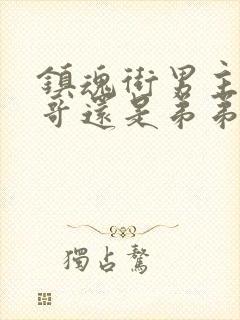 鎮魂街男主
哥還是弟弟
獨占鰲